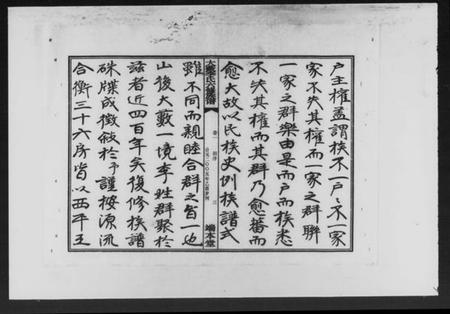 户主權孟謂族不一户户不一家
家不失其權而一家之群聯
一家之群樂由是而户而族悉
不失其權而其群乃愈蕃而
愈大故以民族史例族譜式
卷一
三
端本堂
雖不同而親睦合群之旨一也
山後大
一境李姓群聚於
兹者近四百年矣復修族譜
牒成徵敍於予謹按源流
合衡三十六房皆以西平王